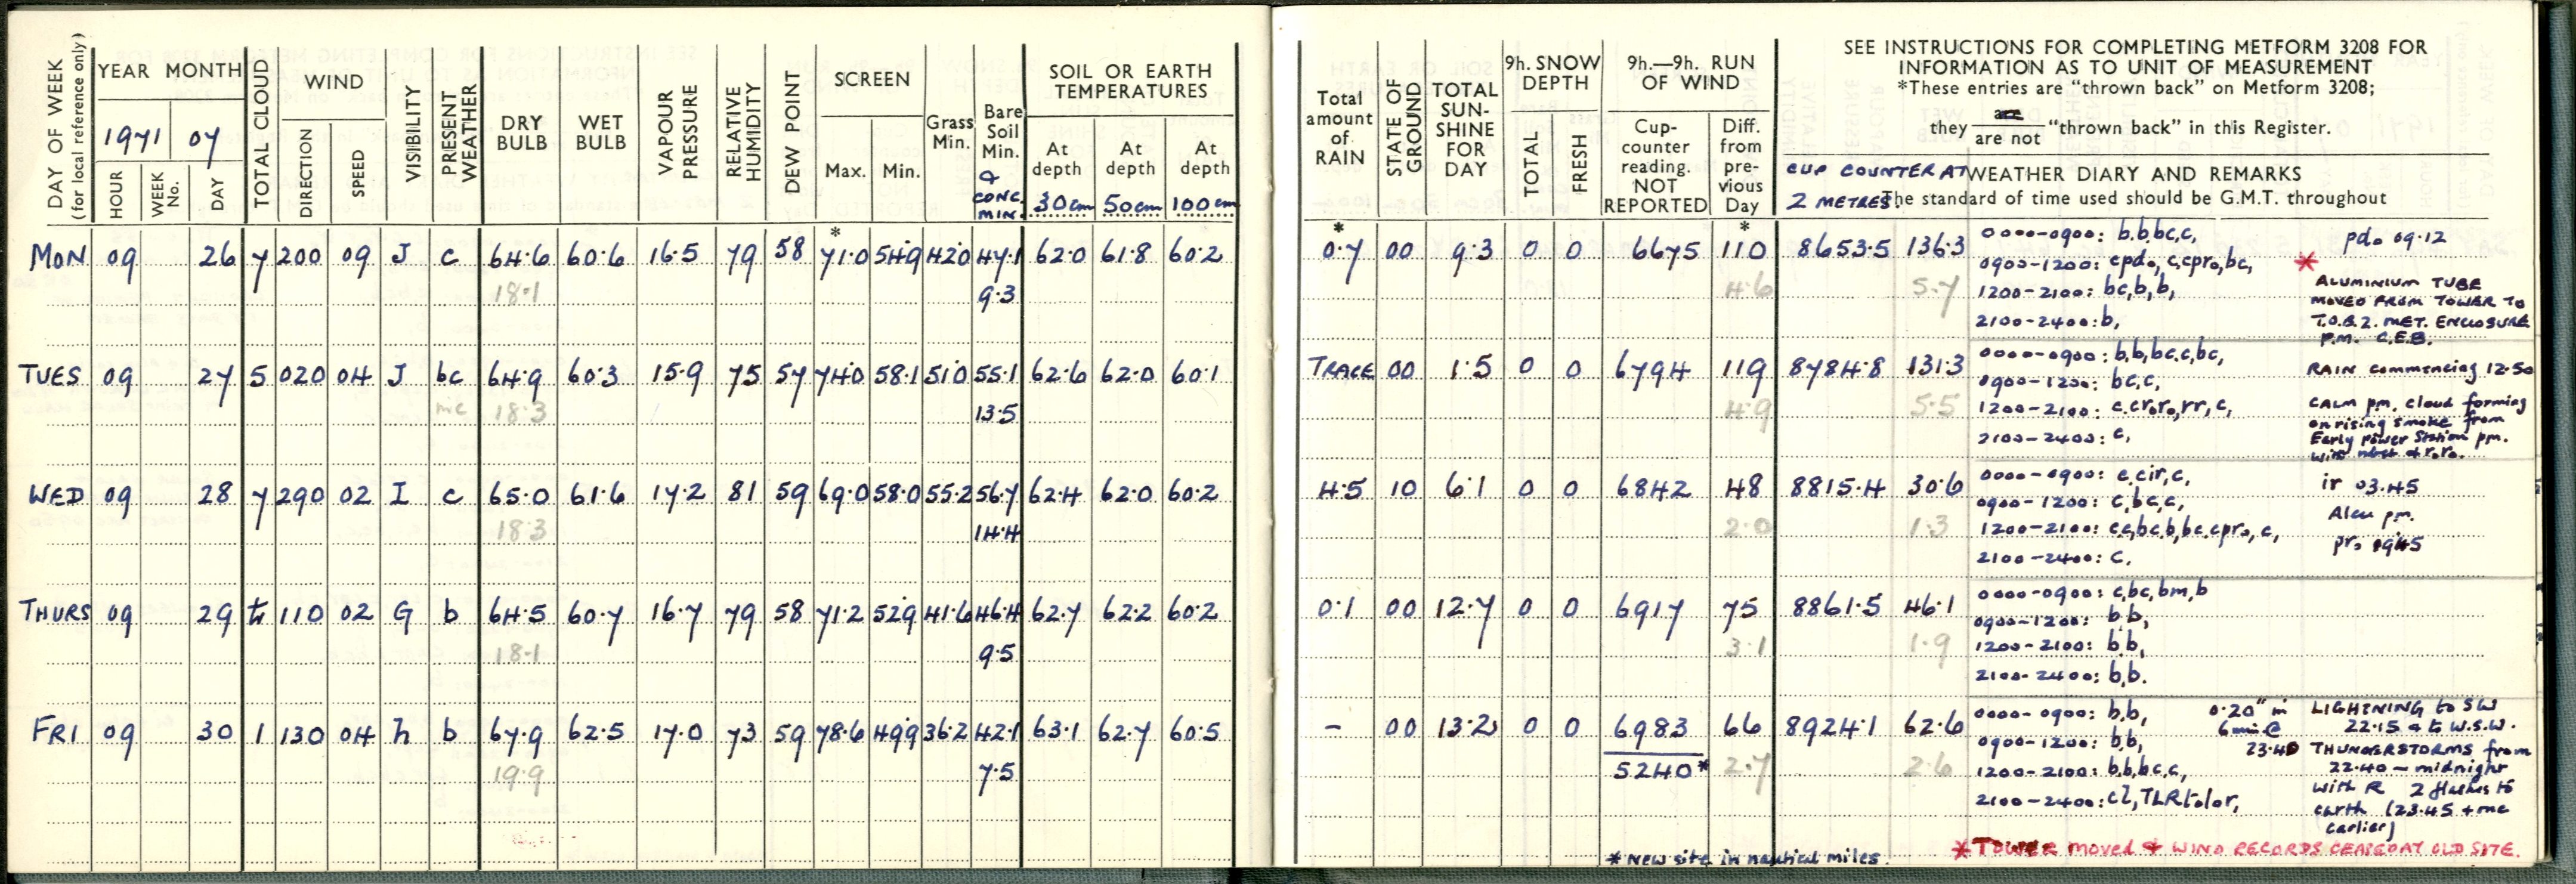 DAY OF WEEK
(for local reference only)
YEAR MONTH
1971 07
HOUR
WEEK No.
DAY
TOTAL CLOUD
WIND
DIRECTION
SPEED
VISIBILITY
PRESENT WEATHER
DRY BULB
WET BULB
VAPOUR PRESSURE
RELATIVE HUMIDITY
DEW POINT
SCREEN
Max. Min.
Grass Min.
Bare Soil Min.
& CONC. MIN.
SOIL OR EARTH TEMPERATURES
At depth 30cm
At depth 50cm
At depth 100cm
Total amount of RAIN
STATE OF GROUND
TOTAL SUN-SHINE FOR DAY
9h. SNOW DEPTH
TOTAL
FRESH
9h.—9h. RUN OF WIND
Cup-counter reading. NOT REPORTED
Diff. from previous Day
SEE INSTRUCTIONS FOR COMPLETING METFORM 3208 FOR
INFORMATION AS TO UNIT OF MEASUREMENT
*These entries are "thrown back" on Metform 3208;
they are / are not "thrown back" in this Register.
CUP COUNTER AT 2 METRES.
WEATHER DIARY AND REMARKS
The standard of time used should be G.M.T. throughout
MON 09 26 7 200 09 J c 64.6 60.6 16.5 79 58 *71.0 54.9 42.0 47.1 62.0 61.8 60.2
18.1 9.3
*0.7 00 9.3 0 0 6675 *110 8653.5 136.3
4.6 5.7
0000-0900: b,b,bc,c,
0900-1200: cpdo, c,cpro,bc,
1200-2100: bc,b,b,
2100-2400: b,
pdo 09.12
* ALUMINIUM TUBE
MOVED FROM TOWER TO
T.O.B.2. MET. ENCLOSURE
P.M. C.E.B.
TUES 09 27 5 020 04 J bc 64.9 60.3 15.9 75 57 74.0 58.1 51.0 55.1 62.6 62.0 60.1
mc 18.3 13.5
TRACE 00 1.5 0 0 6794 119 8784.8 131.3
4.9 5.5
0000-0900: b,b,bc,c,bc,
0900-1200: bc,c,
1200-2100: c,croro,rr,c,
2100-2400: c,
RAIN commencing 12.50
CALM pm. cloud forming
on rising smoke from
Early Power Station pm.
WED 09 28 7 290 02 I c 65.0 61.6 17.2 81 59 69.0 58.0 55.2 56.7 62.4 62.0 60.2
18.3 14.4
4.5 10 6.1 0 0 6842 48 8815.4 30.6
2.0 1.3
0000-0900: c,cir,c,
0900-1200: c,bc,c,
1200-2100: c,c,bc,b,bc,cpro,c,
2100-2400: c,
ir 03.45
pm.
pro 0945
THURS 09 29 tr 110 02 G b 64.5 60.7 16.7 79 58 71.2 52.9 41.6 46.4 62.7 62.2 60.2
18.1 9.5
0.1 00 12.7 0 0 6917 75 8861.5 46.1
3.1 1.9
0000-0900: c,bc,bm,b
0900-1200: b,b,
1200-2100: b,b,
2100-2400: b,b.
FRI 09 30 1 130 04 h b 67.9 62.5 17.0 73 59 78.6 49.9 36.2 42.1 63.1 62.7 60.5
19.9 7.5
- 00 13.2 0 0 6983 66 8924.1 62.6
5240* 2.7 2.6
0000-0900: b,b,
0900-1200: b,b,
1200-2100: b,b,bc,c,
2100-2400: cl,TLRtolor,
0.20" in
6min @
23.40
LIGHTNING to SW
22.15 & to W.S.W.
THUNDERSTORMS from
22.40 - midnight
with R 2 flashes to
earth (23.45 + one
earlier)
* NEW site in nautical miles.
*TOWER moved & WIND RECORDS CEASED AT OLD SITE.